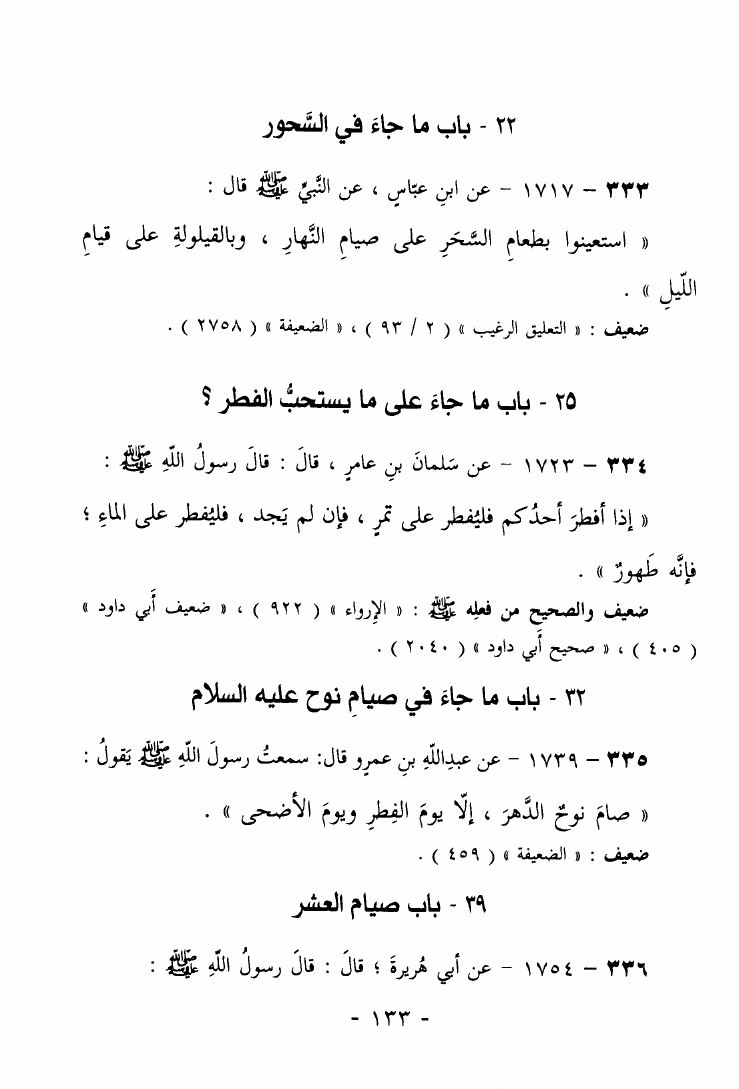 ٢٢ - باب ما جاءَ في السَّحور
٣٣٣ – ١٧١٧ – عن ابنِ عبّاسٍ ، عن النَّبيِّ ﷺ قال :
« استعينوا بطعامِ السَّحَرِ على صيامِ النَّهارِ ، وبالقيلولةِ على قيامِ
اللّيلِ » .
ضعيف : « التعليق الرغيب » ( ٢ / ٩٣ ) ، « الضعيفة » ( ٢٧٥٨ ) .
٢٥ - باب ما جاءَ على ما يستحبُّ الفطر ؟
٣٣٤ – ١٧٢٣ – عن سَلمانَ بنِ عامرٍ ، قالَ : قالَ رسولُ اللّهِ ﷺ :
« إذا أفطرَ أحدُكم فليُفطر على تمرٍ ، فإن لم يَجد ، فليُفطر على الماءِ ؛
فإنَّه طَهورٌ » .
ضعيف والصحيح من فعلِه ﷺ : « الإرواء » ( ٩٢٢ ) ، « ضعيف أَبي داود »
( ٤٠٥ ) ، « صحيح أَبي داود » ( ٢٠٤٠ ) .
٣٢ - باب ما جاءَ في صيامِ نوح عليه السلام
٣٣٥ – ١٧٣٩ – عن عبدِاللّهِ بنِ عمرٍو قال: سمعتُ رسولَ اللّهِ ﷺ يَقولُ :
« صامَ نوحٌ الدَّهرَ ، إلّا يومَ الفِطرِ ويومَ الأضحى » .
ضعيف : « الضعيفة » ( ٤٥٩ ) .
٣٩ - باب صيام العشر
٣٣٦ – ١٧٥٤ – عن أبي هُريرةَ ؛ قالَ : قالَ رسولُ اللّهِ ﷺ :
- ١٣٣ -